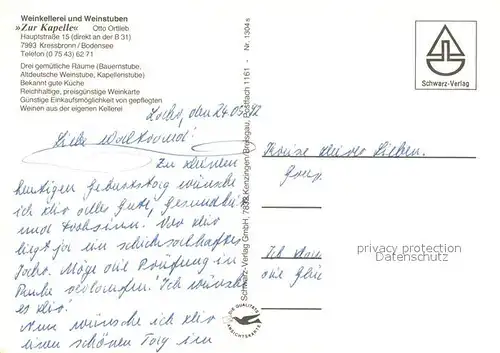 Weinkellerei und Weinstuben
»Zur Kapelle« Otto Ortlieb
Hauptstraße 15 (direkt an der B 31)
7993 Kressbronn / Bodensee
Telefon (0 75 43) 62 71
Drei gemütliche Räume (Bauernstube,
Altdeutsche Weinstube, Kapellenstube)
Bekannt gute Küche
Reichhaltige, preisgünstige Weinkarte
Günstige Einkaufsmöglichkeit von gepflegten
Weinen aus der eigenen Kellerei
den 24.05.92
Liebe
Zu deinem
heutigen Geburtstag wünsche
ich dir alles Gute, Gesundheit
und Frohsinn. Vor dir
liegt ja ein schicksalhaftes
Jahr. Möge die Prüfung in
Ruhe verlaufen. Ich wünsche
es dir!
Nun wünsche ich dir
einen schönen Tag im
Schwarz-Verlag GmbH, 7832 Kenzingen/Breisgau, Postfach 1161 - Nr. 1304 s
DIE QUALITÄTS
ANSICHTSKARTE
Schwarz-Verlag
Kreise deiner Lieben.
Ich
die
privacy protection
Datenschutz